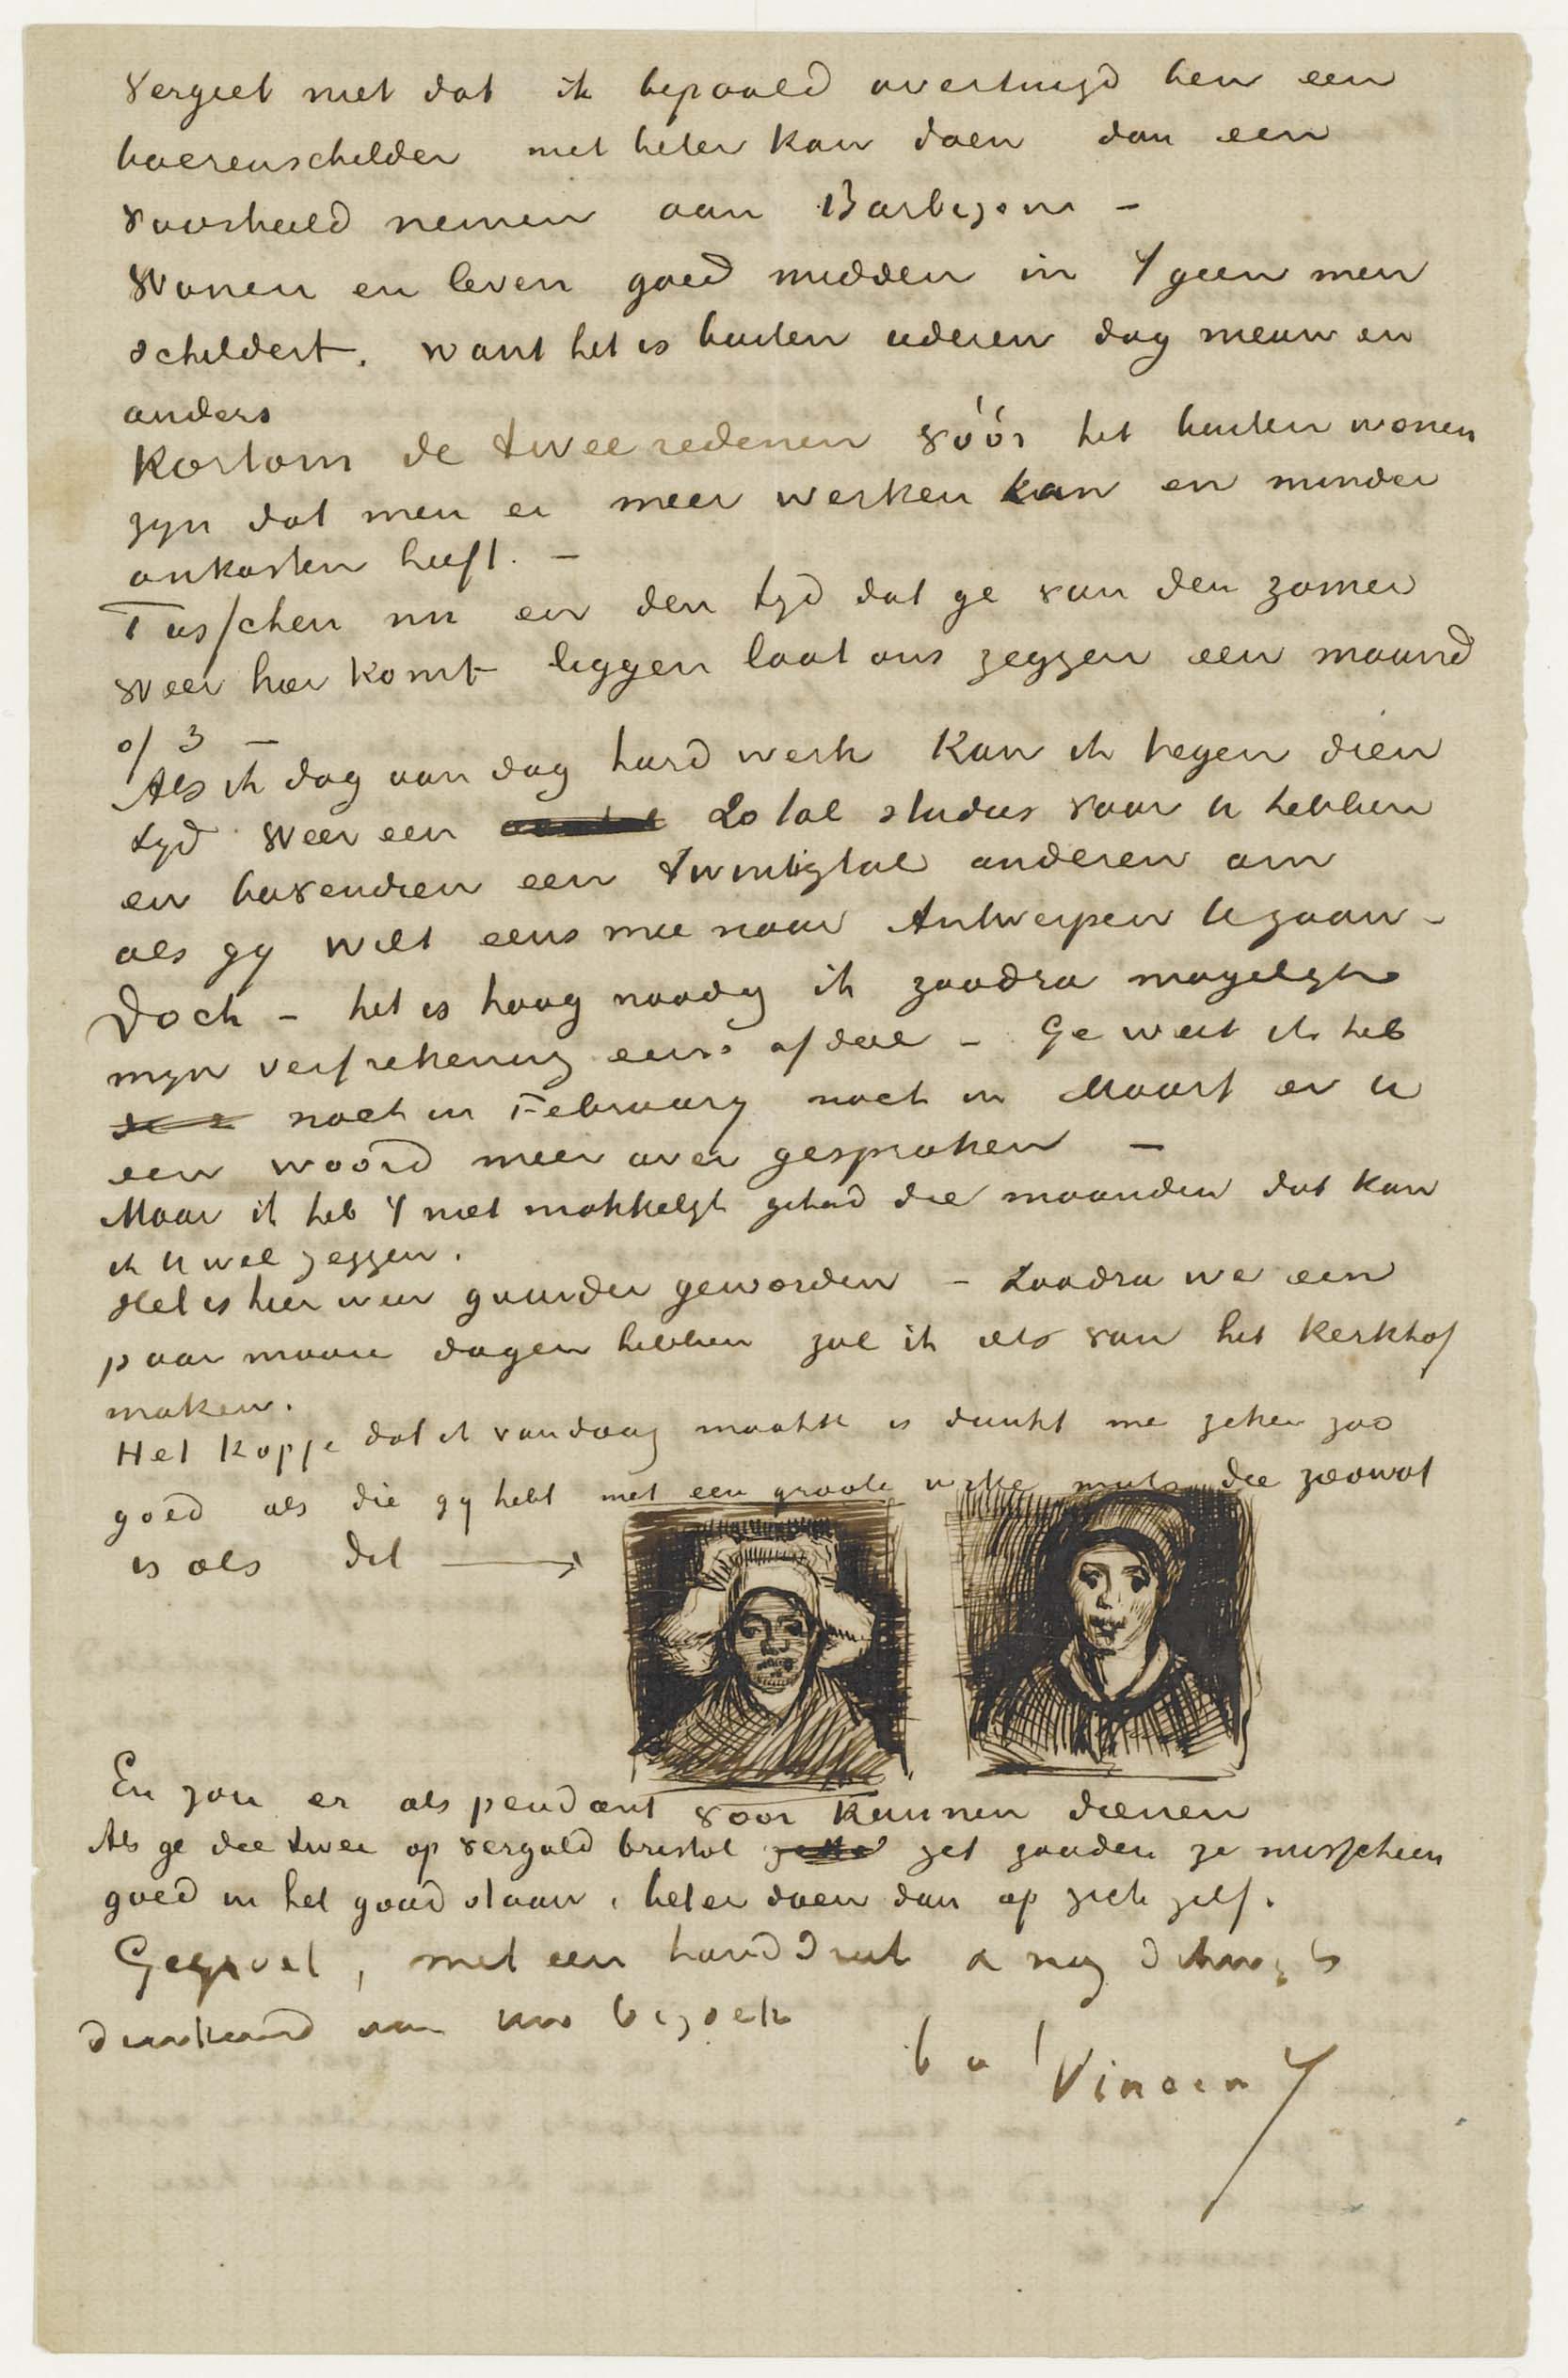 Vergeet niet dat ik bepaald overtuigd ben een
boerenschilder niet beter kan doen dan een
voorbeeld nemen aan Barbizon –
Wonen en leven goed midden in 't geen men
schildert. want het is buiten iederen dag nieuw en
anders
Kortom de twee redenen vóór het buiten wonen
zyn dat men er meer werken kan en minder
onkosten heeft. –
Tusschen nu en den tyd dat ge van den zomer
weer hier komt liggen laat ons zeggen een maand
of 3 –
Als ik dag aan dag hard werk kan ik tegen dien
tyd weer een 20 tal studies voor U hebben
en bovendien een twintigtal anderen om
als gy wilt eens mee naar Antwerpen te gaan –
Doch – het is hoog noodig ik zoodra mogelyk
myn verfrekening eens afdoe – Ge weet ik heb
noch in February noch in Maart er U
een woord meer over gesproken –
Maar ik heb 't niet makkelyk gehad die maanden dat kan
ik U wel zeggen.
Het is hier weer guurder geworden – Zoodra we een
paar mooie dagen hebben zal ik iets van het kerkhof
maken.
Het kopje dat ik vandaag maakte is dunkt me zeker zoo
goed als die gy hebt met een groote witte muts die zoowat
is als dit
En zou er als pendant voor kunnen dienen
Als ge die twee op verguld bristol zet zouden ze misschien
goed in het goud staan, beter doen dan op zich zelf.
Gegroet, met een handdruk & nog
dankend voor Uw bezoek
t. a. t. Vincent